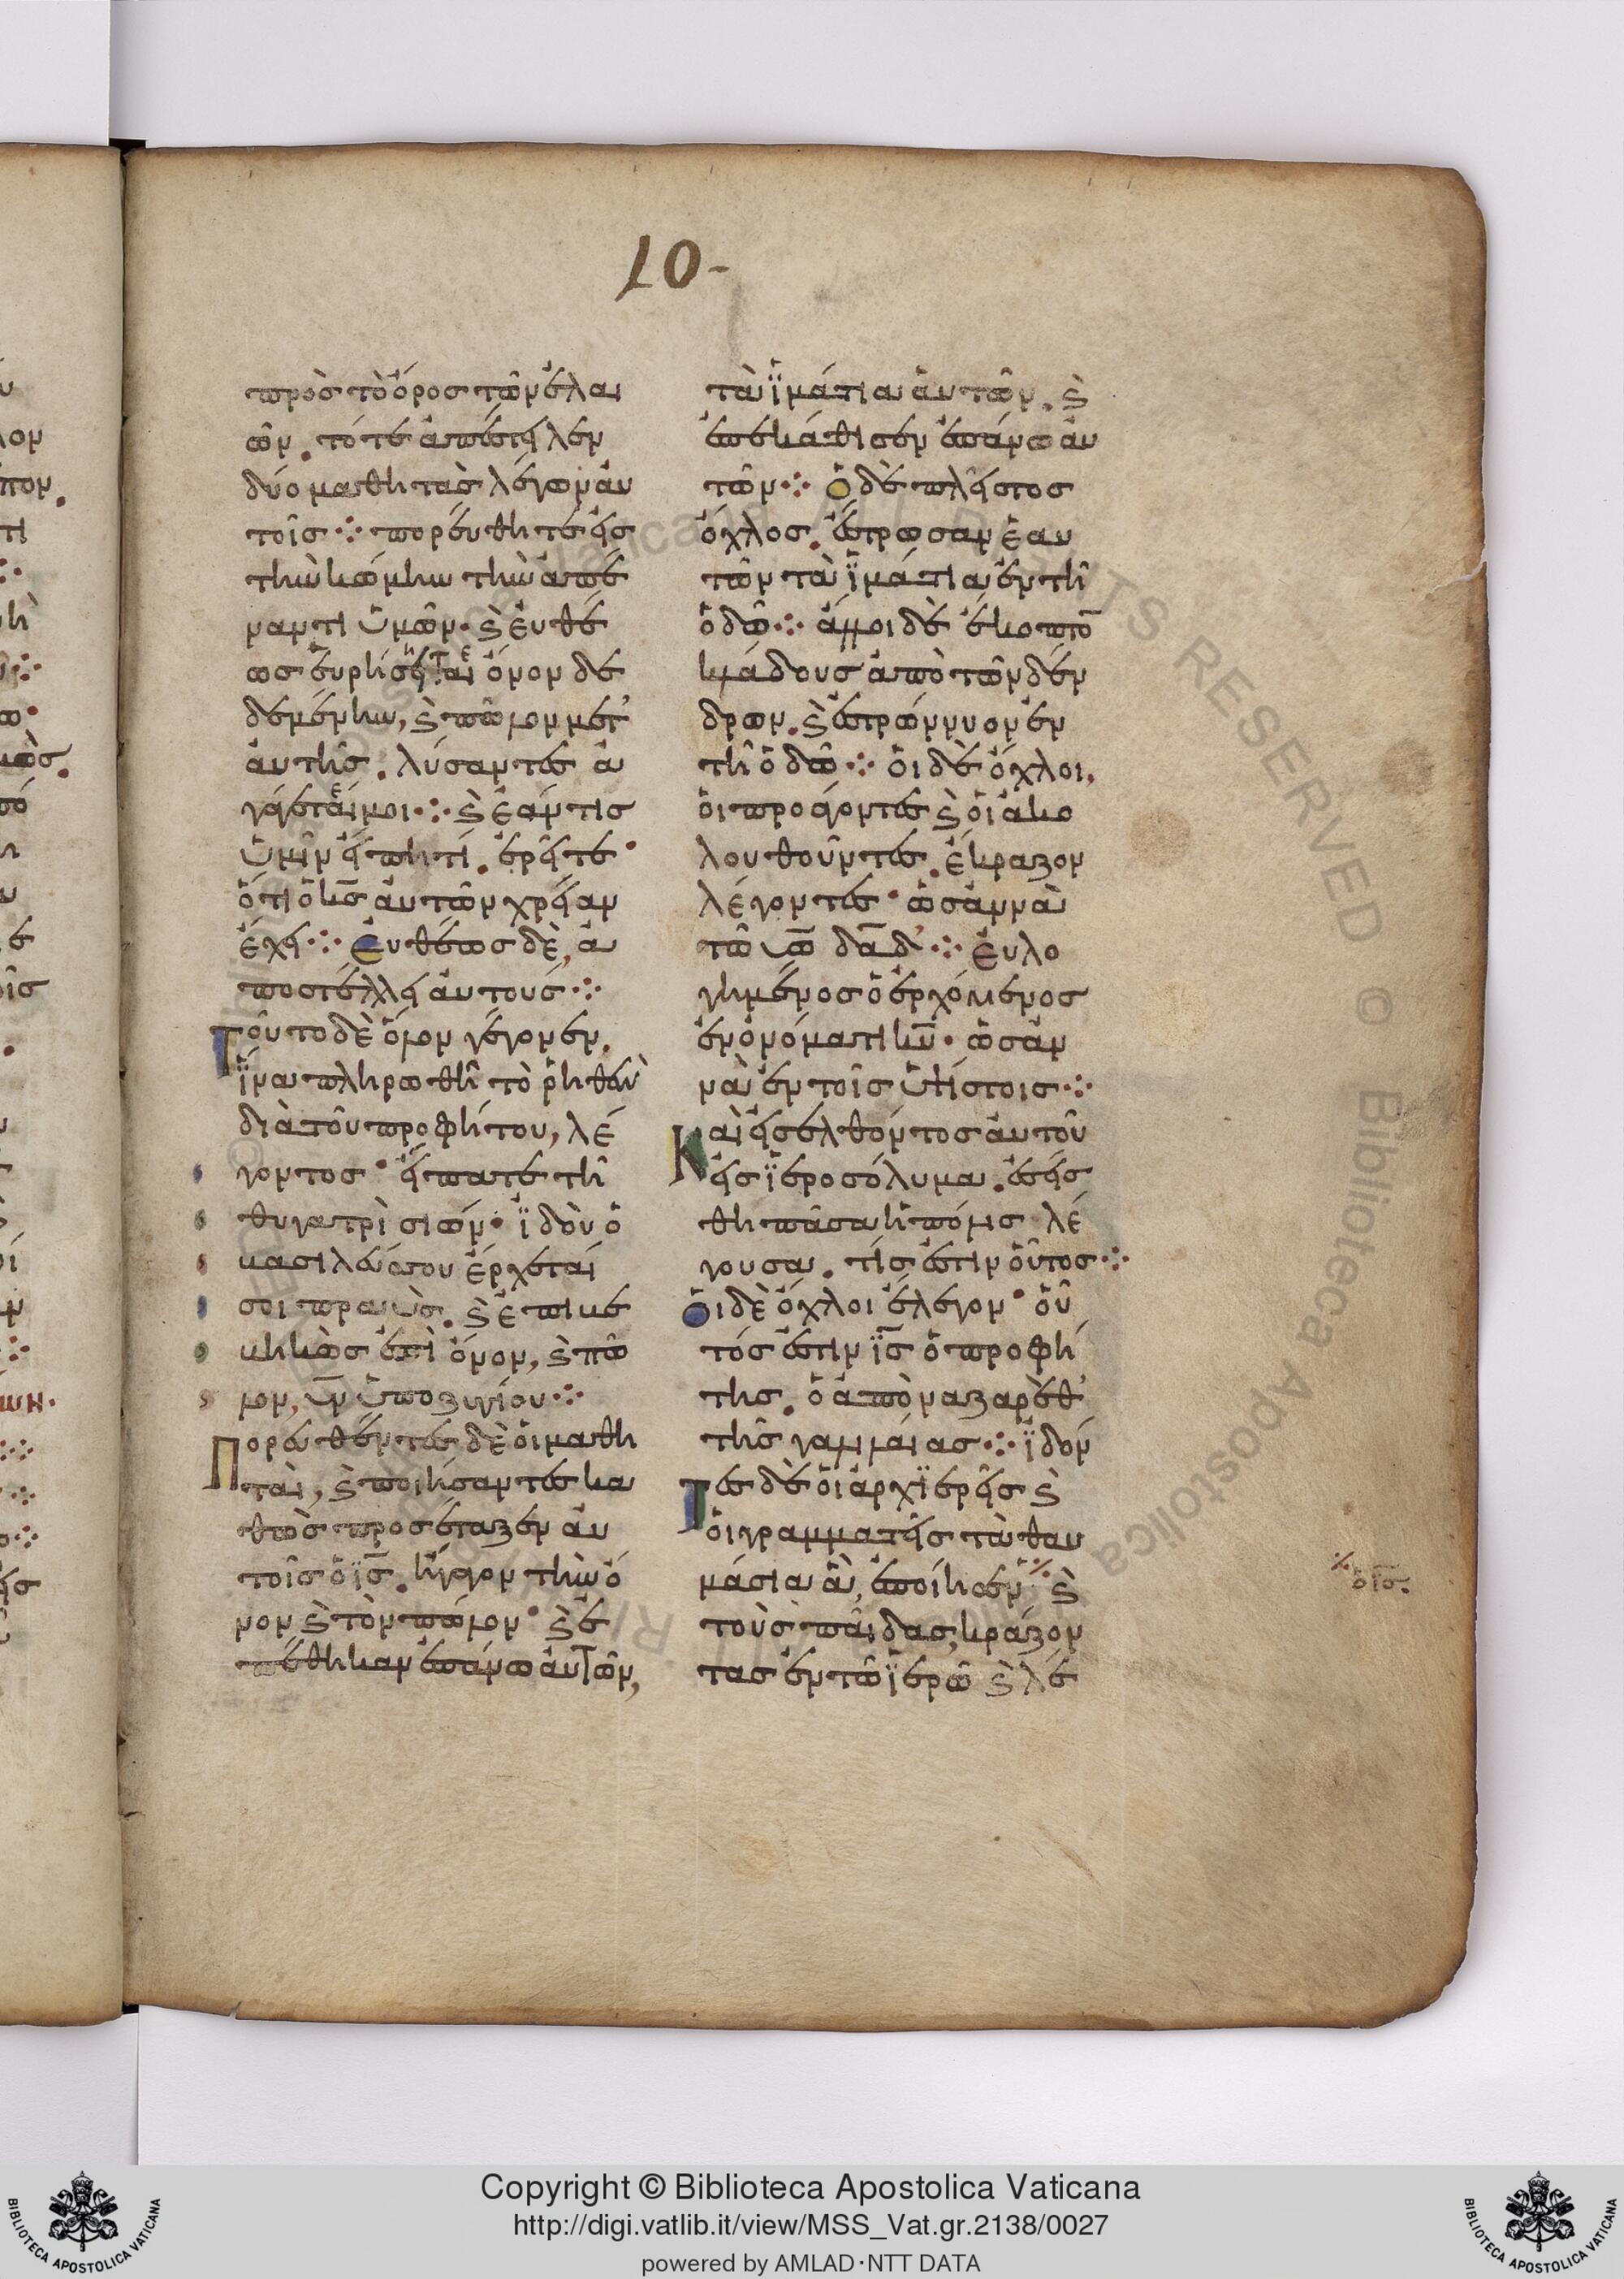 10-
πρὸς τὸ ὄρος τῶν ἐλαι
ῶν. τότε ἀπέστειλεν
δύο μαθητὰς λέγων αὐ
τοῖς ⁘ πορεύθητε εἰς
τὴν κώμην τὴν ἀπέ
ναντι ὑμῶν· ϗ εὐθέ
ως εὑρήσεται ὄνον δε
δεμένην, ϗ πῶλον μετ’
αὐτῆς. λύσαντες ἀ
γάγεταί μοι ⁘ ϗ ἐάν τις
ὑμῖν εἴπη τί. ἐρεῖτε·
ὅτι ὁ κ̅ς̅ αὐτῶν χρείαν
ἔχει ⁘ Εὐθέως δὲ, ἀ
ποστέλλει αὐτούς ⁘
Τοῦτο δὲ ὅλον γέγονεν.
ἵνα πληρωθῆ τὸ ῥηθὲν
διὰ τοῦ προφήτου, λέ
γοντος· εἴπατε τῆ
θυγατρὶ σιών· ἰδοὺ ὁ
βασιλεύς σου ἔρχεταί
σοι πραῢς. ϗ ἐπιβε
βηκὼς ἐπὶ ὄνον, ϗ πῶ
λον, υ̅ν̅ ὑποζυγίου ⁘
Πορευθέντες δὲ οἱ μαθη
ταὶ, ϗ ποιήσαντες κα
θὼς προσέταξεν αὐ
τοῖς ὁ ι̅ς̅. ἤγαγον τὴν ὄ
νον ϗ τὸν πῶλον· ϗ ἐ
πέθηκαν ἐπάνω αὐτῶν,
τὰ ἱμάτια αὐτῶν. ϗ
ἐπεκάθισεν ἐπάνω αὐ
τῶν ⁘ Ὁ δὲ πλεῖστος
ὄχλος. ἔστρωσαν ἑαυ
τῶν τὰ ἱμάτια ἐν τῆ
ὁδῶ ⁘ ἄλλοι δὲ ἔκοπτο̅
κλάδους ἀπὸ τῶν δέν
δρων. ϗ ἐστρώννυον ἐν
τῆ ὁδῶ ⁘ οἱ δὲ ὄχλοι,
οἱ προάγοντες ϗ οἱ ἀκο
λουθοῦντες. ἔκραζον
λέγοντες· ὡσαννὰ
τῶ υ̅ω̅ δ̅α̅δ̅ ⁘ Εὐλο
γημένος ὁ ἐρχόμενος
ἐν ὀνόματι κ̅υ̅· ὡσαν
νὰ ἐν τοῖς ὑψίστοις ⁘
Καὶ εἰσελθόντος αὐτοῦ
εἰς ἱεροσόλυμα. ἐσείσ
θη πᾶσα ἡ πόλις λέ
γουσα. τίς ἐστιν οὗτος ⁘
Οἱ δὲ ὄχλοι ἔλεγον· οὗ
τός ἐστιν ι̅ς̅ ὁ προφή
της. ὁ ἀπὸ ναζαρὲθ’
τῆς γαλιλαίας ⁘ ἰδόν
Τες δὲ οἱ ἀρχιερεῖς ϗ
οἱ γραμματεῖς τὰ θαυ
μάσια ἃ, ἐποίησεν ⁒ ϗ
τοὺς παῖδας, κράζον
τας ἐν τῶ ἱερῶ ϗ λέ
⁒ ὁ ι̅ς̅.
Copyright © Biblioteca Apostolica Vaticana
http://digi.vatlib.it/view/MSS_Vat.gr.2138/0027
powered by AMLAD·NTT DATA
BIBLIOTECA APOSTOLICA VATICANA
BIBLIOTECA APOSTOLICA VATICANA